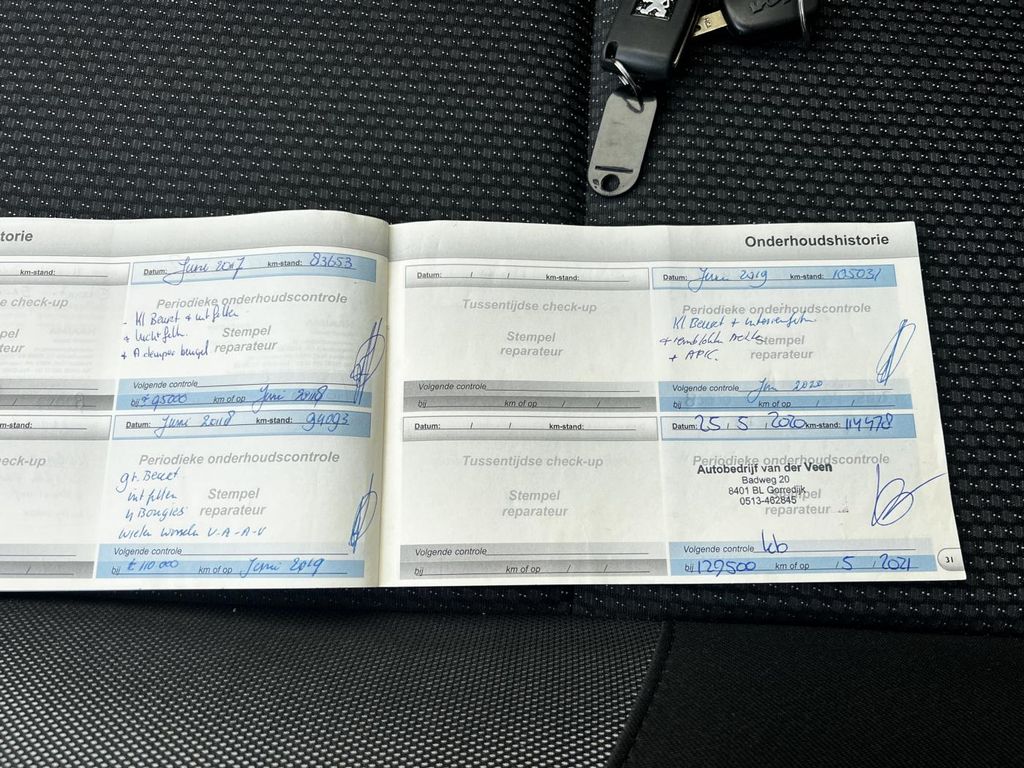 torie
km-stand:
e check-up
pel
teur
Datum: Juni 2017 km-stand: 83653
Periodieke onderhoudscontrole
- Kl Beurt + int filter
+ lucht filter
Stempel
reparateur
Volgende controle
bij ± 95000 km of op Juni 2018
km-stand:
eck-up
pel
teur
Datum: Juni 2018 km-stand: 94093
Periodieke onderhoudscontrole
gr. Beurt
int filter
4 Bougies
Stempel
reparateur
wielen wisselen V-A-A-V
Volgende controle
bij ± 110 000 km of op Juni 2019
Onderhoudshistorie
Datum: / / km-stand:
Tussentijdse check-up
Stempel
reparateur
Volgende controle
bij km of op / /
Datum: Juni 2019 km-stand: 105031
Periodieke onderhoudscontrole
Kl Beurt + interieurfilter
+ remblokken Achter
+ APK.
Stempel
reparateur
Volgende controle Juni 2020
bij km of op / /
Datum: / / km-stand:
Tussentijdse check-up
Stempel
reparateur
Volgende controle
bij km of op / /
Datum: 25 / 5 / 2020 km-stand: 114478
Periodieke onderhoudscontrole
Autobedrijf van der Veen
Badweg 20
8401 BL Gorredijk
0513-462845
Stempel
reparateur
Volgende controle kb
bij 129500 km of op / 5 / 2021
31